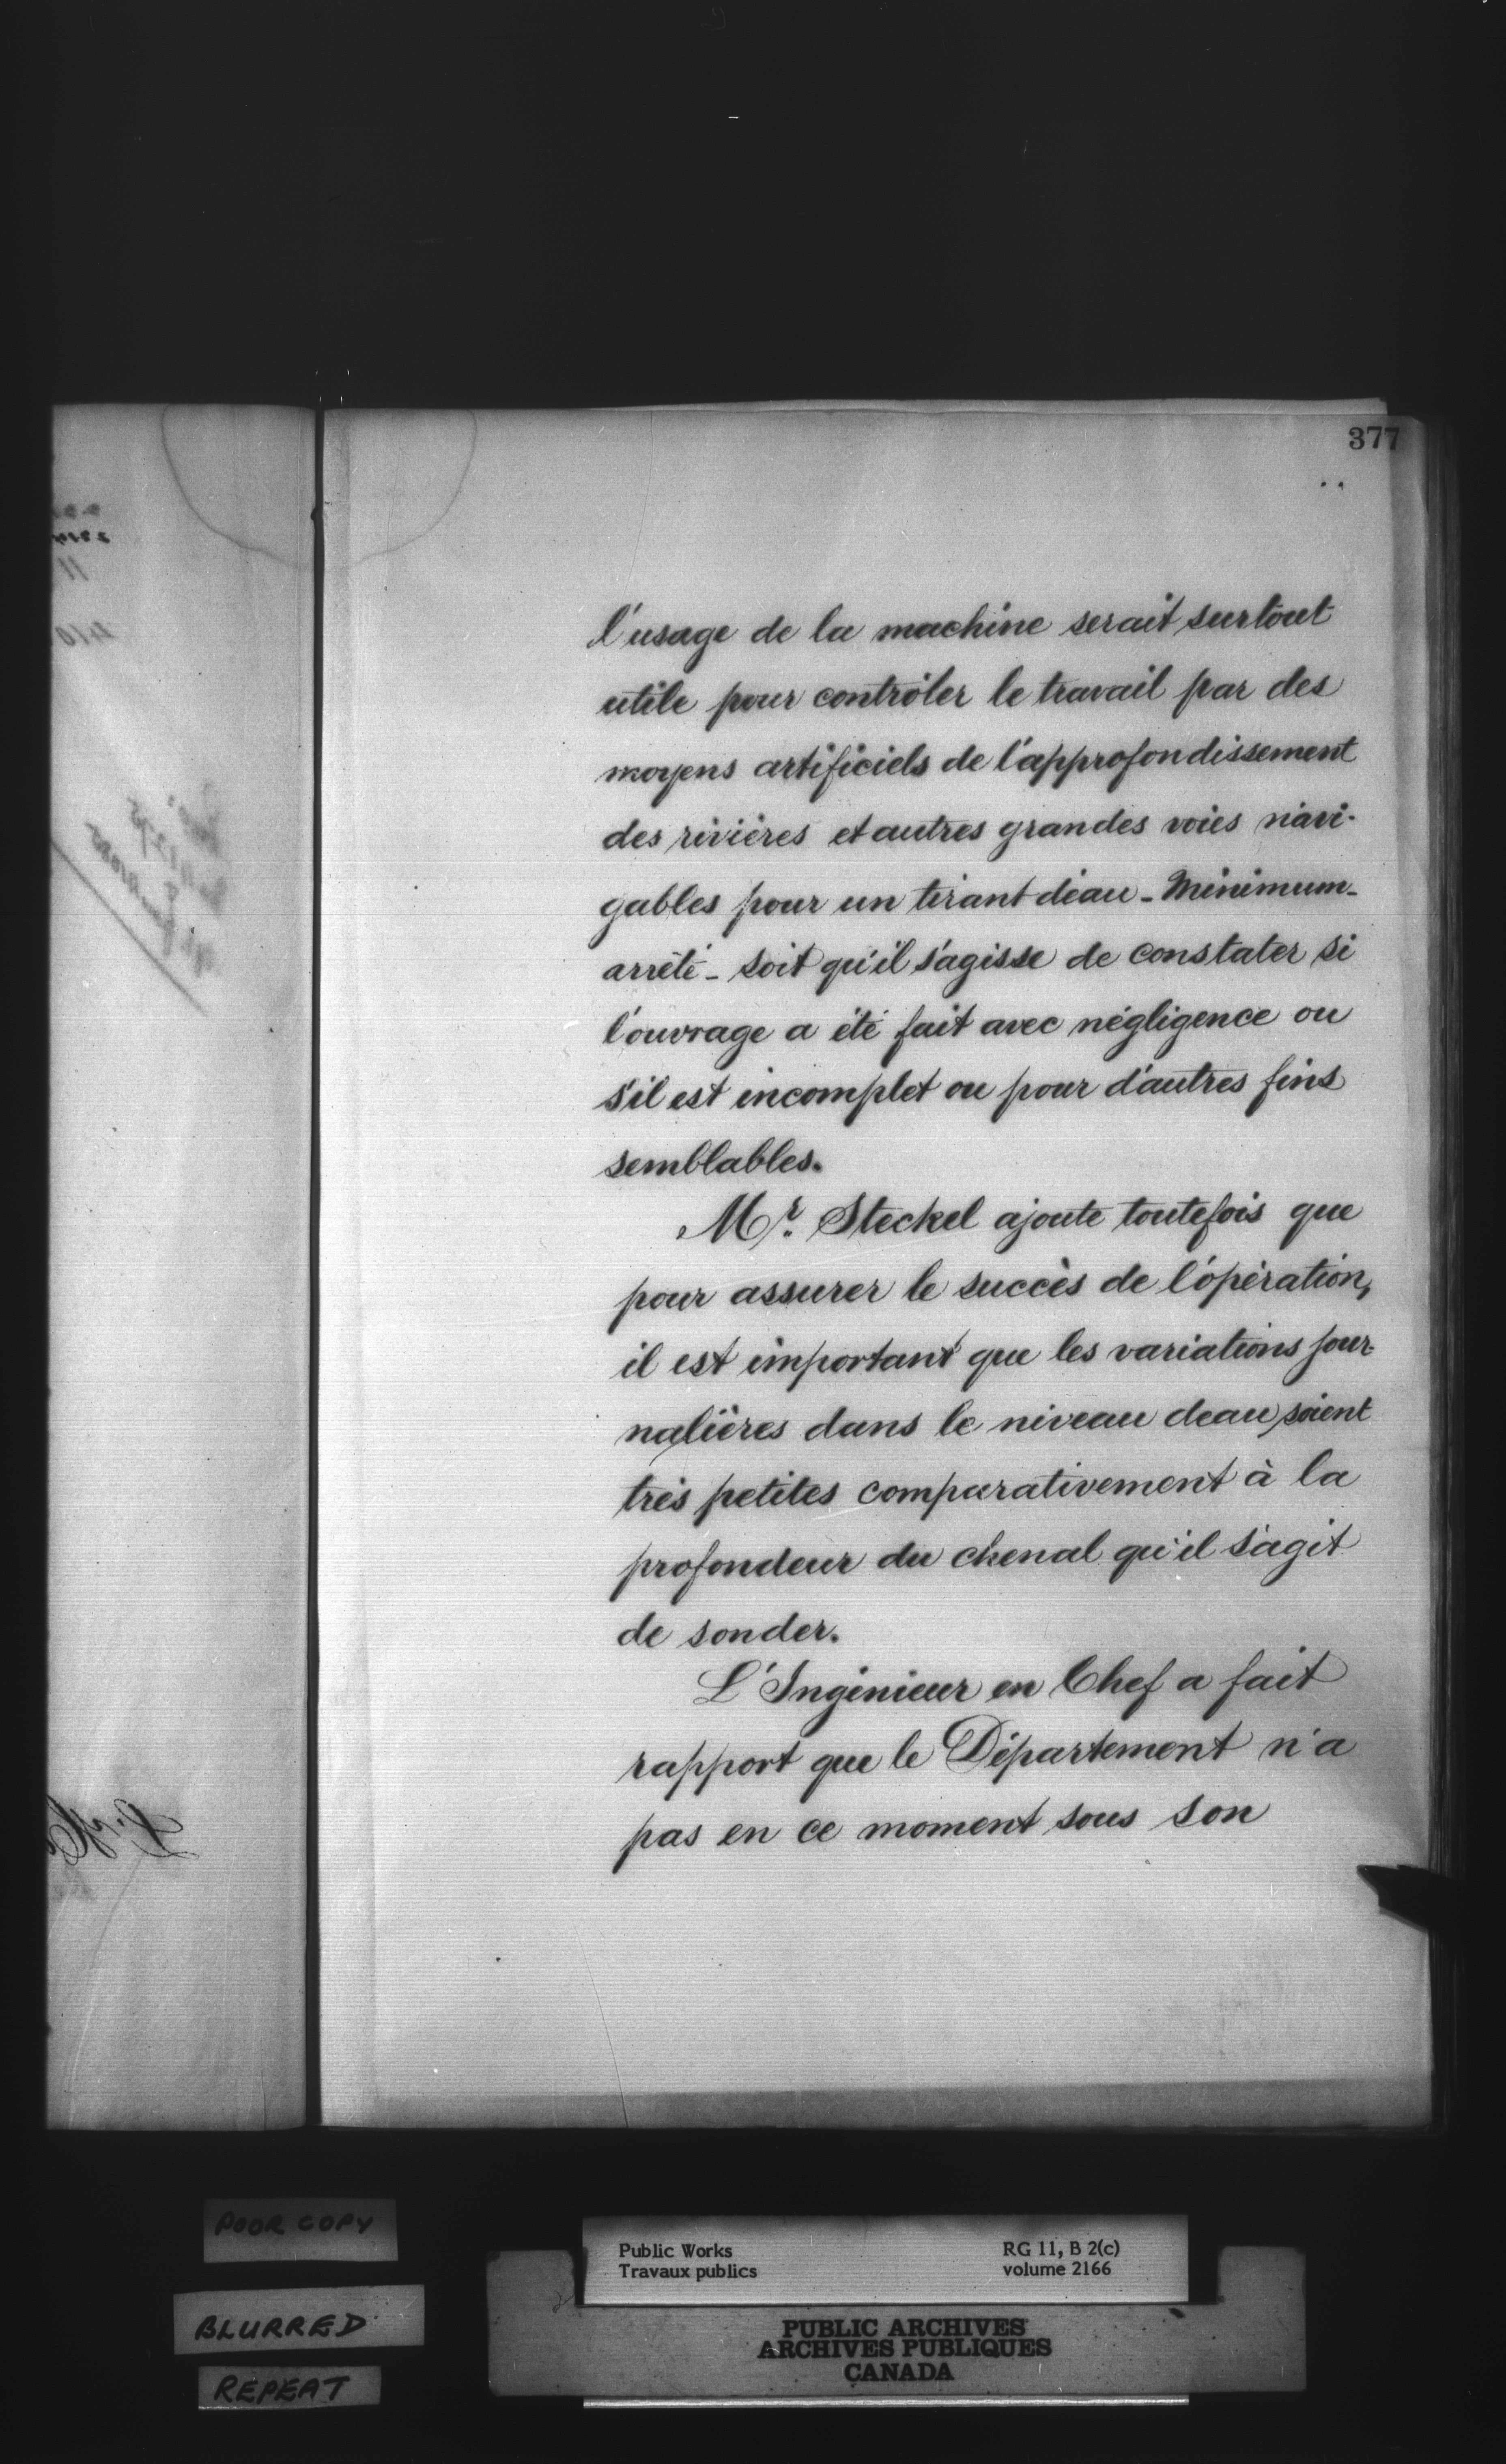 377
l'usage de la machine serait surtout
utile pour contrôler le travail par des
moyens artificiels de l'approfondissement
des rivières et autres grandes voies navi-
gables pour un tirant d'eau - Minimum -
arrêté - soit qu'il s'agisse de constater si
l'ouvrage a été fait avec négligence ou
s'il est incomplet ou pour d'autres fins
semblables.
Mr. Steckel ajoute toutefois que
pour assurer le succès de l'opération,
il est important que les variations jour-
nalières dans le niveau d'eau soient
très petites comparativement à la
profondeur du chenal qu'il s'agit
de sonder.
L'Ingénieur en Chef a fait
rapport que le Département n'a
pas en ce moment sous son
POOR COPY
BLURRED
REPEAT
Public Works RG 11, B 2(c)
Travaux publics volume 2166
PUBLIC ARCHIVES
ARCHIVES PUBLIQUES
CANADA